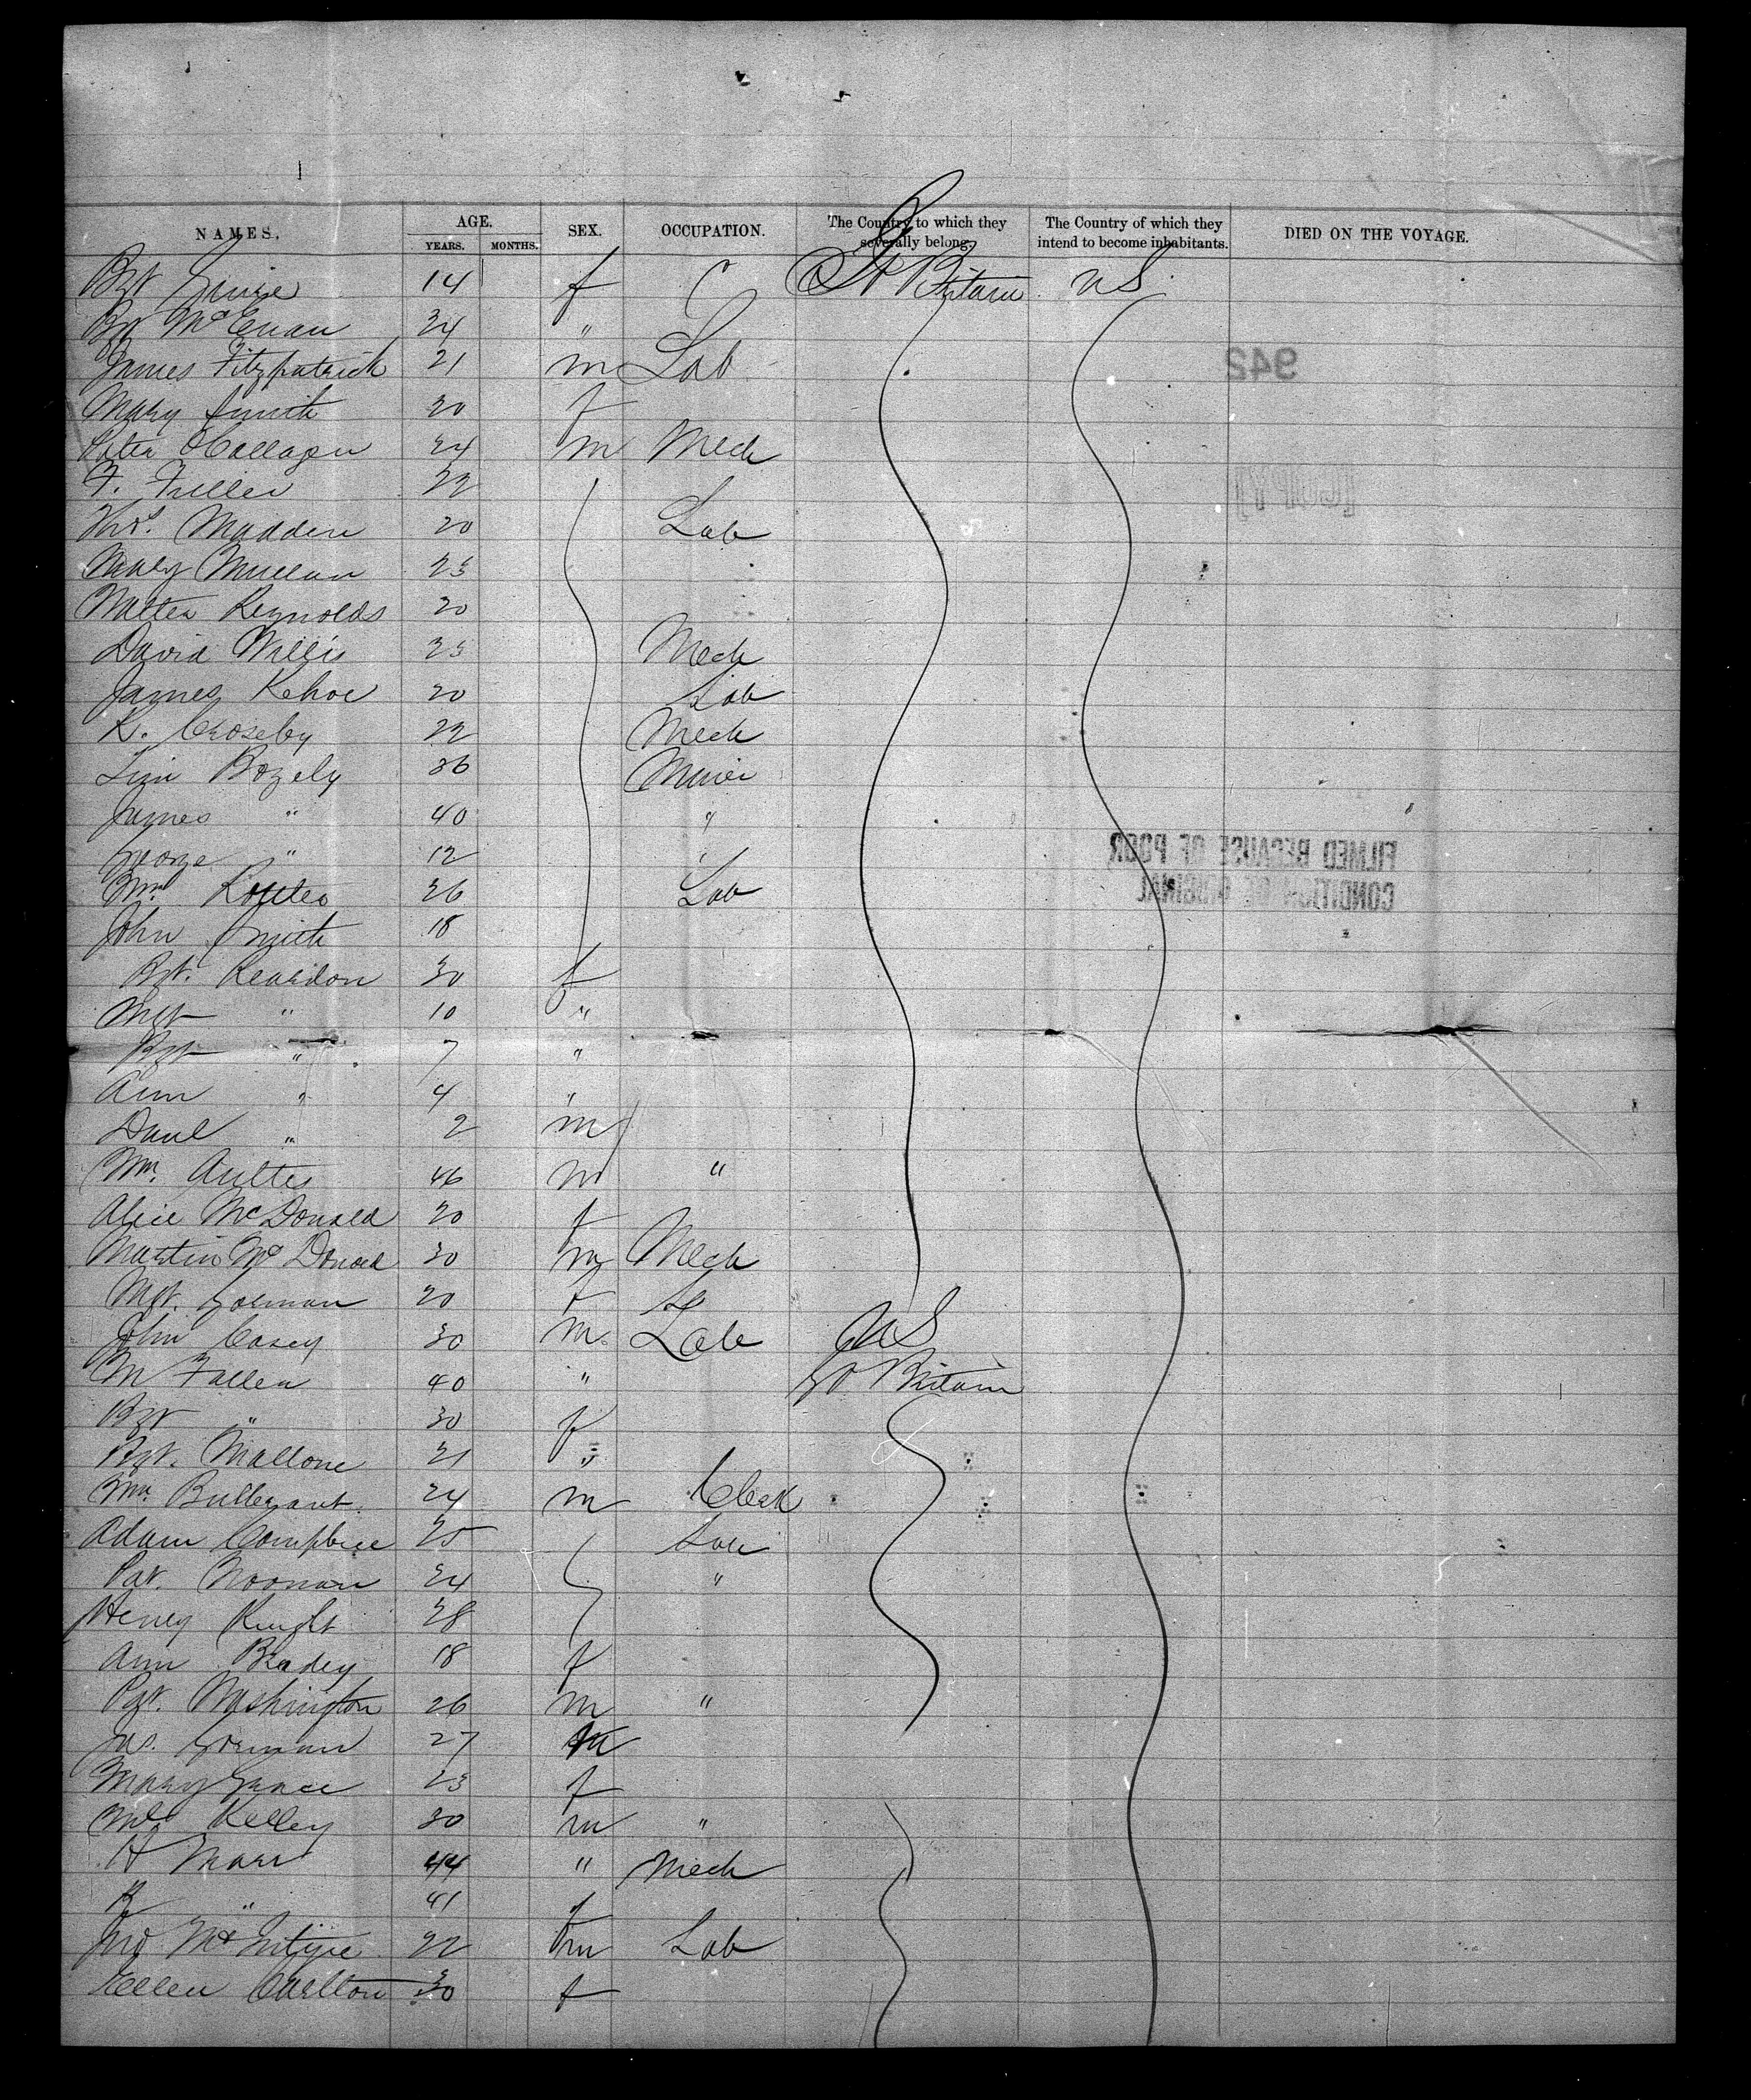 NAMES. AGE. SEX. OCCUPATION. The Country to which they severally belong. The Country of which they intend to become inhabitants. DIED ON THE VOYAGE.
YEARS. MONTHS.
Bgt 14 f Gt Britain U S
Bgt McEuan 34 "
James Fitzpatrick 21 m Lab
942
Mary Smith 20 f
Peter O'Callagan 24 m Mech
F. Fuller 22
[COPY]
Thos. Madden 20 Lab
Mary Mullan 25
Walter Reynolds 20
David Willis 25 Mech
James Kehoe 20 Lab
K. Croseby 22 Mech
Bozely 36 Miner
James " 40 "
George " 12 "
FILMED BECAUSE OF POOR
CONDITION OF ORIGINAL
Wm 26 Lab
John Smith 18
Bgt. Reardon 30 f
Mgt " 10 "
Bgt " 7 "
Ann " 4 "
Danl " 2 m
Wm. 46 m "
Alice McDonald 20 f
Martin McDonald 30 m Mech
Mgt. Gorman 20 f
John Casey 30 m Lab U S
M Fallen 40 " Gt Britain
Bgt " 30 f
Bgt. Mallone 21 "
Wm. 24 m Clerk
Adam Campbell 25 Lab
Pat. Noonan 24 "
Henry Knight 28
Ann Bradey 18 f
Pat. Washington 26 m "
Jas. Gorman 27 m
Mary Grace 23 f
Ml Kelley 30 m "
H Marr 44 " Mech
B " 41 f
Jno McIntyre 22 m Lab
Ellen Carlton 30 f